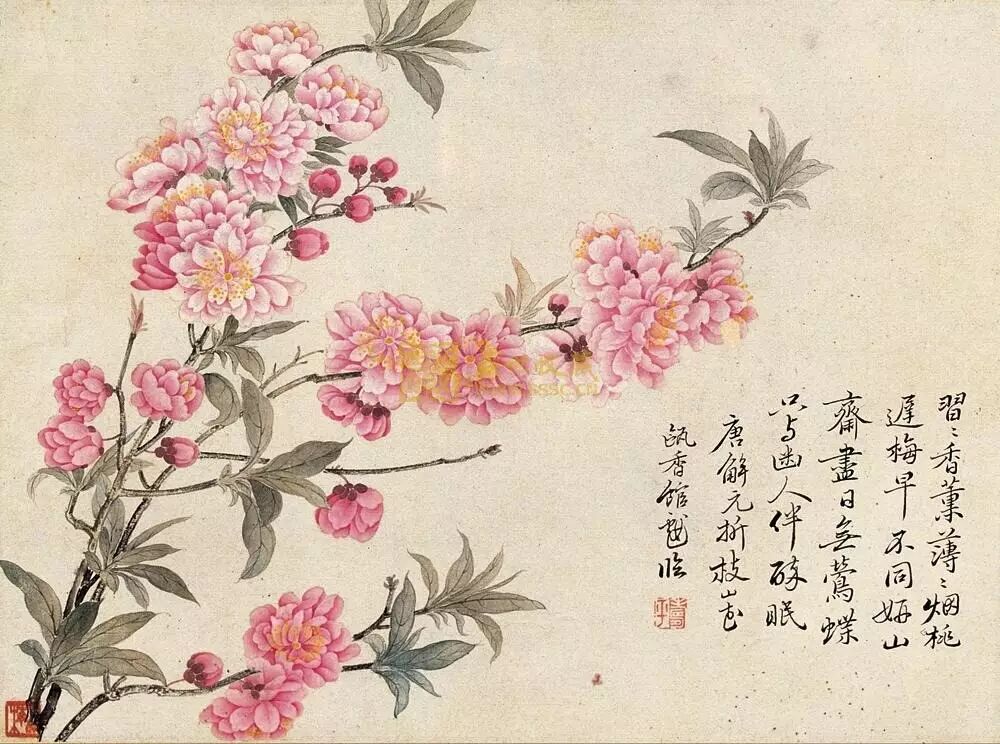 習〻香薰薄〻烟桃
遲梅早不同妍山
齋盡日無鶯蝶
只与幽人伴醉眠
唐解元折枝
甌香館戲臨
壽平